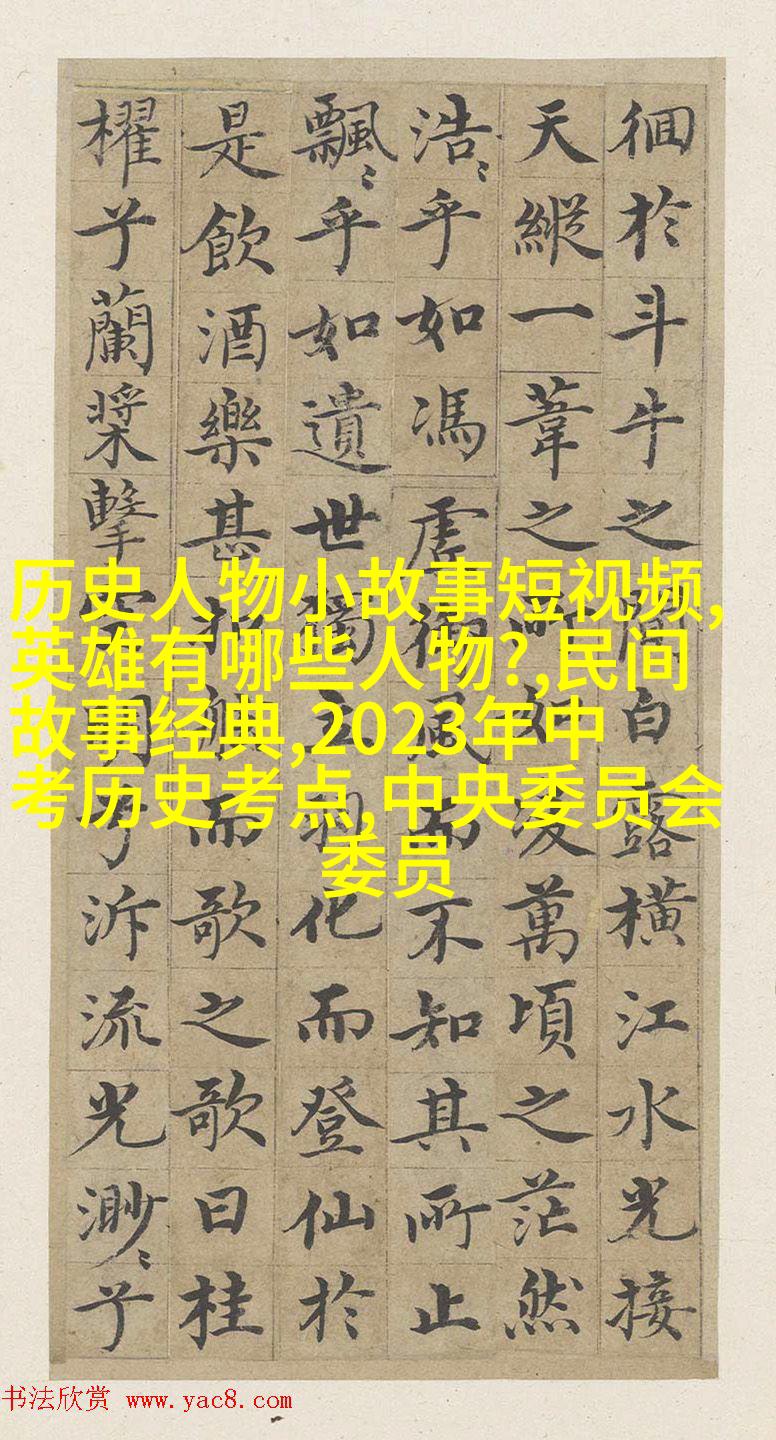 徊於斗牛之間白露橫江水光接
天縱一葦之所如凌萬頃之茫然
浩〻乎如馮虛御風而不知其所止
飄〻乎如遺世獨立羽化而登仙於
是飲酒樂甚扣舷而歌之歌曰桂
櫂兮蘭槳擊空明兮泝流光渺〻兮
历史人物小故事短视频,
英雄有哪些人物?,民间
故事经典,2023年中
考历史考点,中央委员会
委员
书法欣赏 www.yac8.com